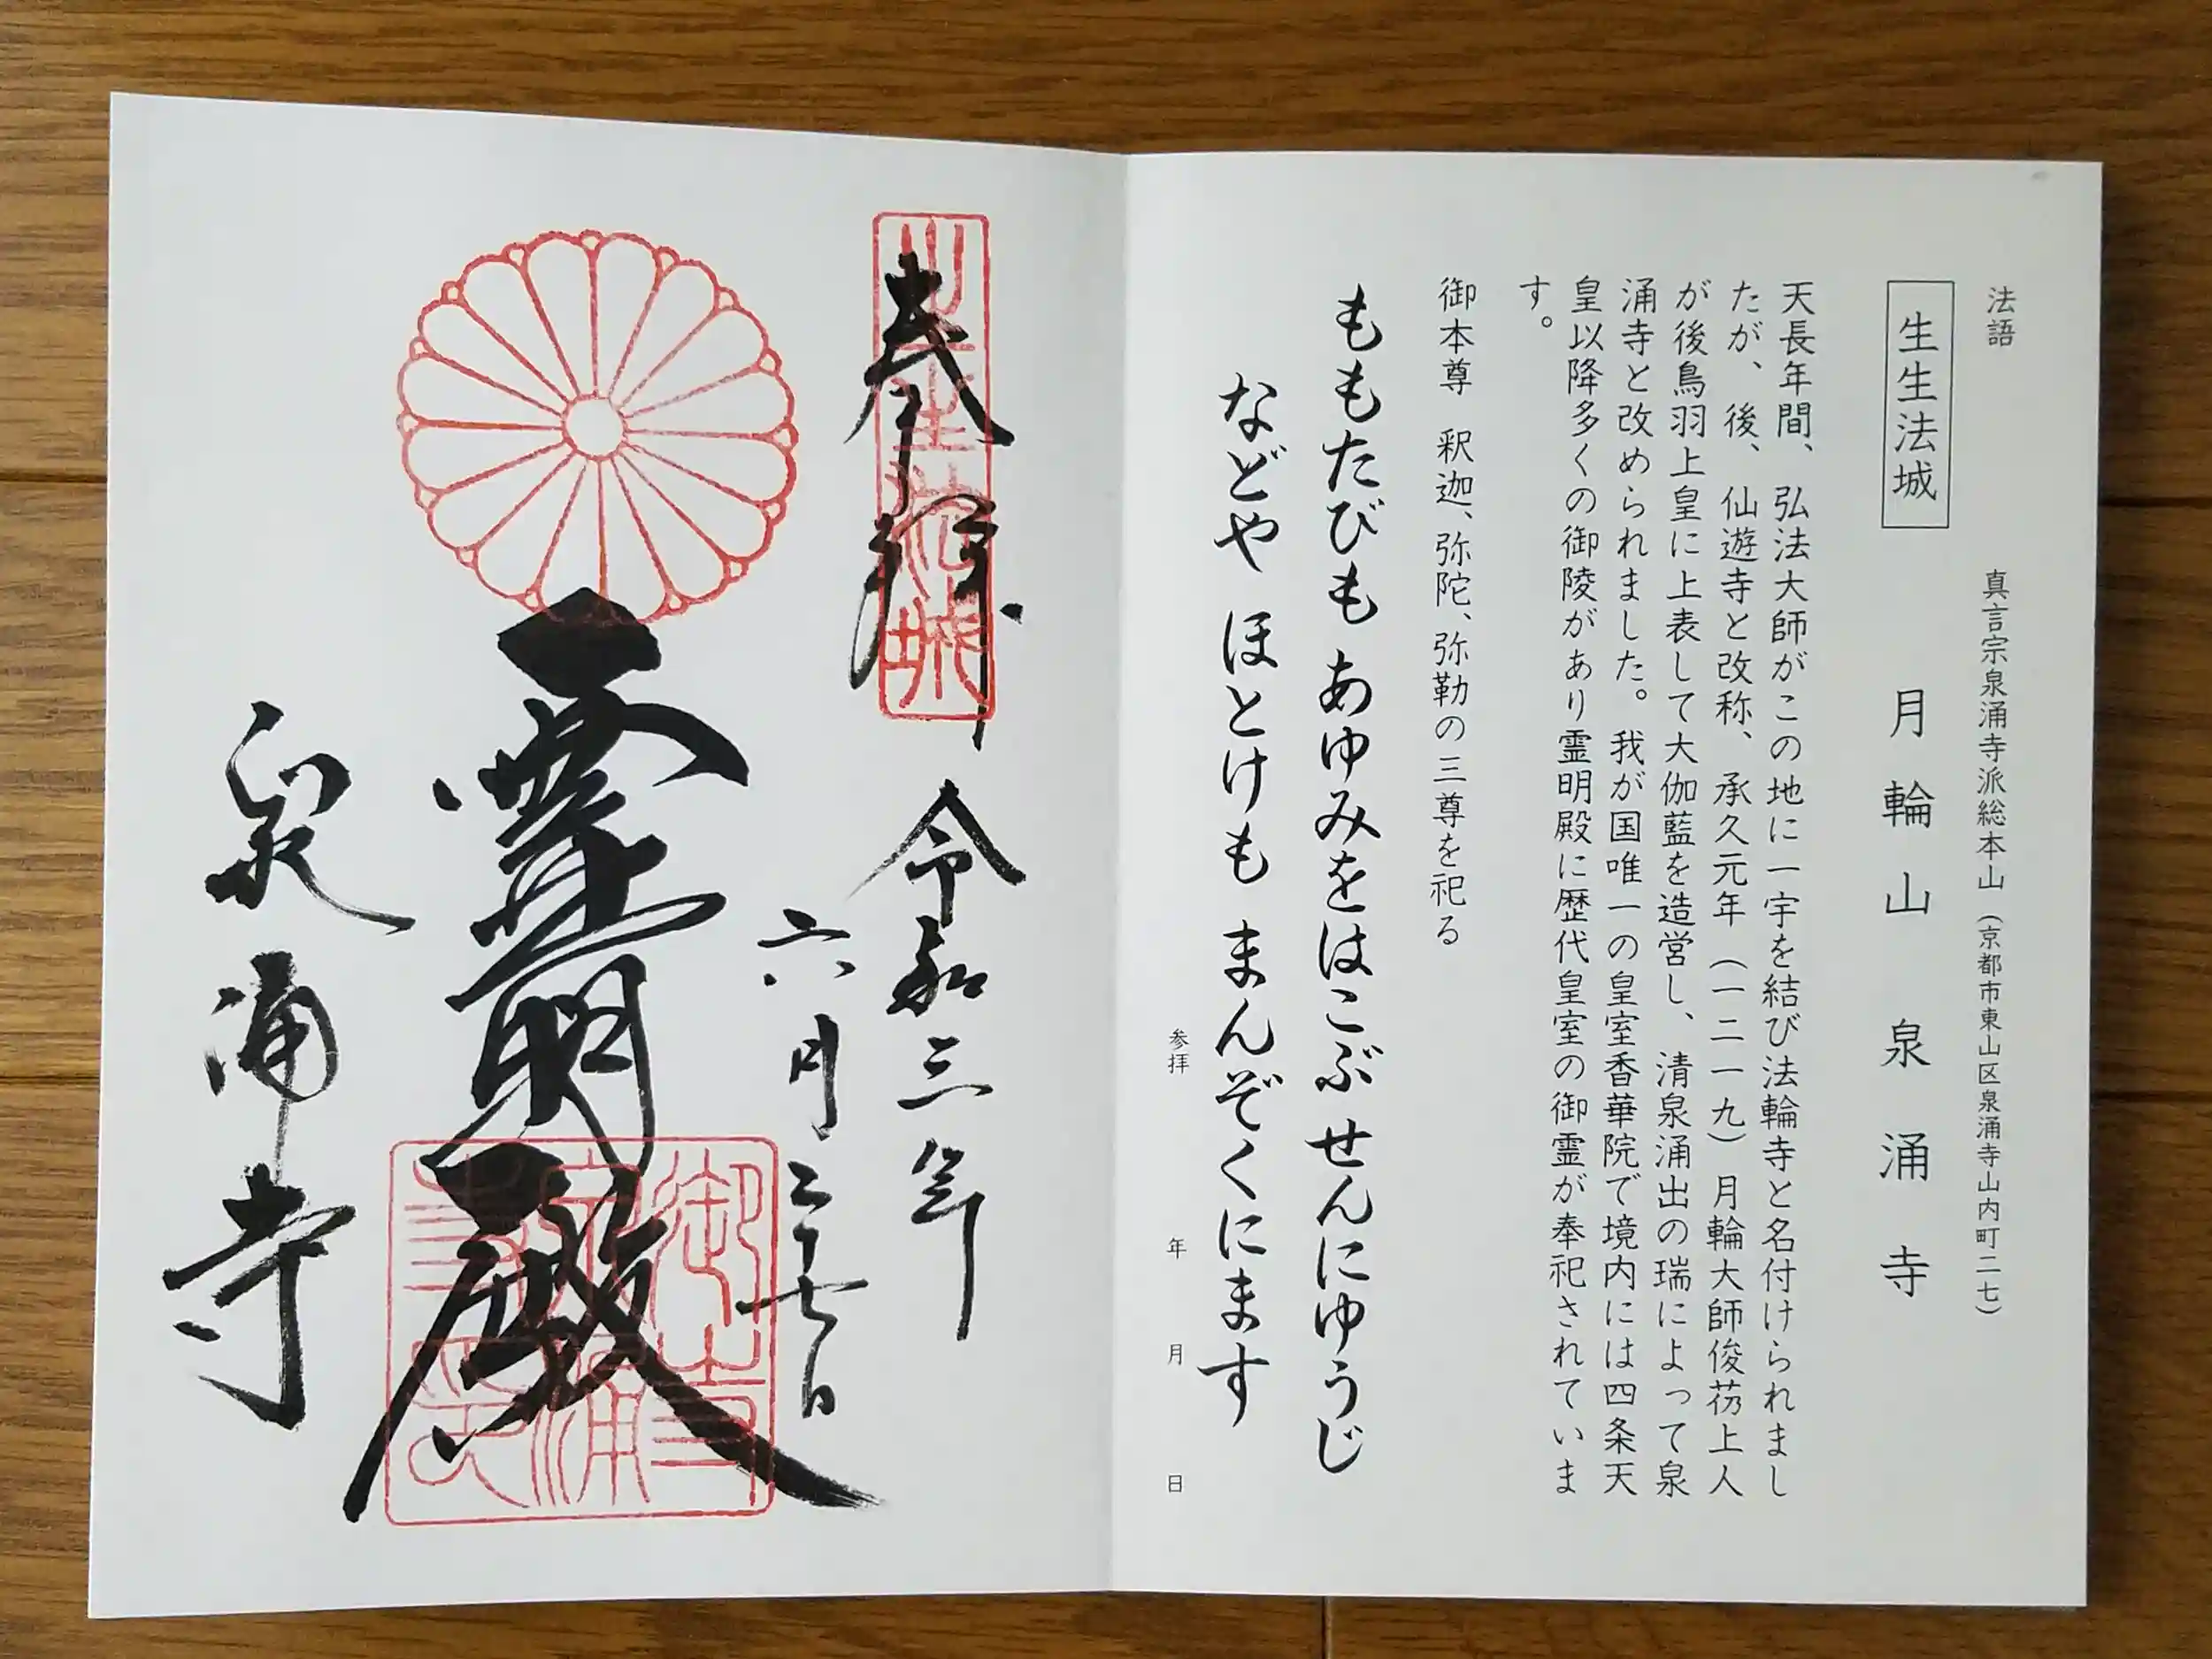 法語
真言宗泉涌寺派総本山（京都市東山区泉涌寺山内町二七）
生生法城
月輪山泉涌寺
天長年間、弘法大師がこの地に一宇を結び法輪寺と名付けられまし
たが、後、仙遊寺と改称、承久元年（一二一九）月輪大師俊芿上人
が後鳥羽上皇に上表して大伽藍を造営し、清泉涌出の瑞によって泉
涌寺と改められました。我が国唯一の皇室香華院で境内には四条天
皇以降多くの御陵があり霊明殿に歴代皇室の御霊が奉祀されていま
す。
御本尊　釈迦、弥陀、弥勒の三尊を祀る
ももたびも あゆみをはこぶ せんにゆうじ
などや ほとけも まんぞくにます
参拝　年　月　日
奉拝
生生法城
令和三年
六月二十七日
霊明殿
泉涌寺